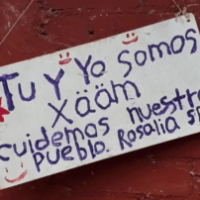 Tu y Yo somos
xääm
cuidemos nuestro
pueblo. Rosalia